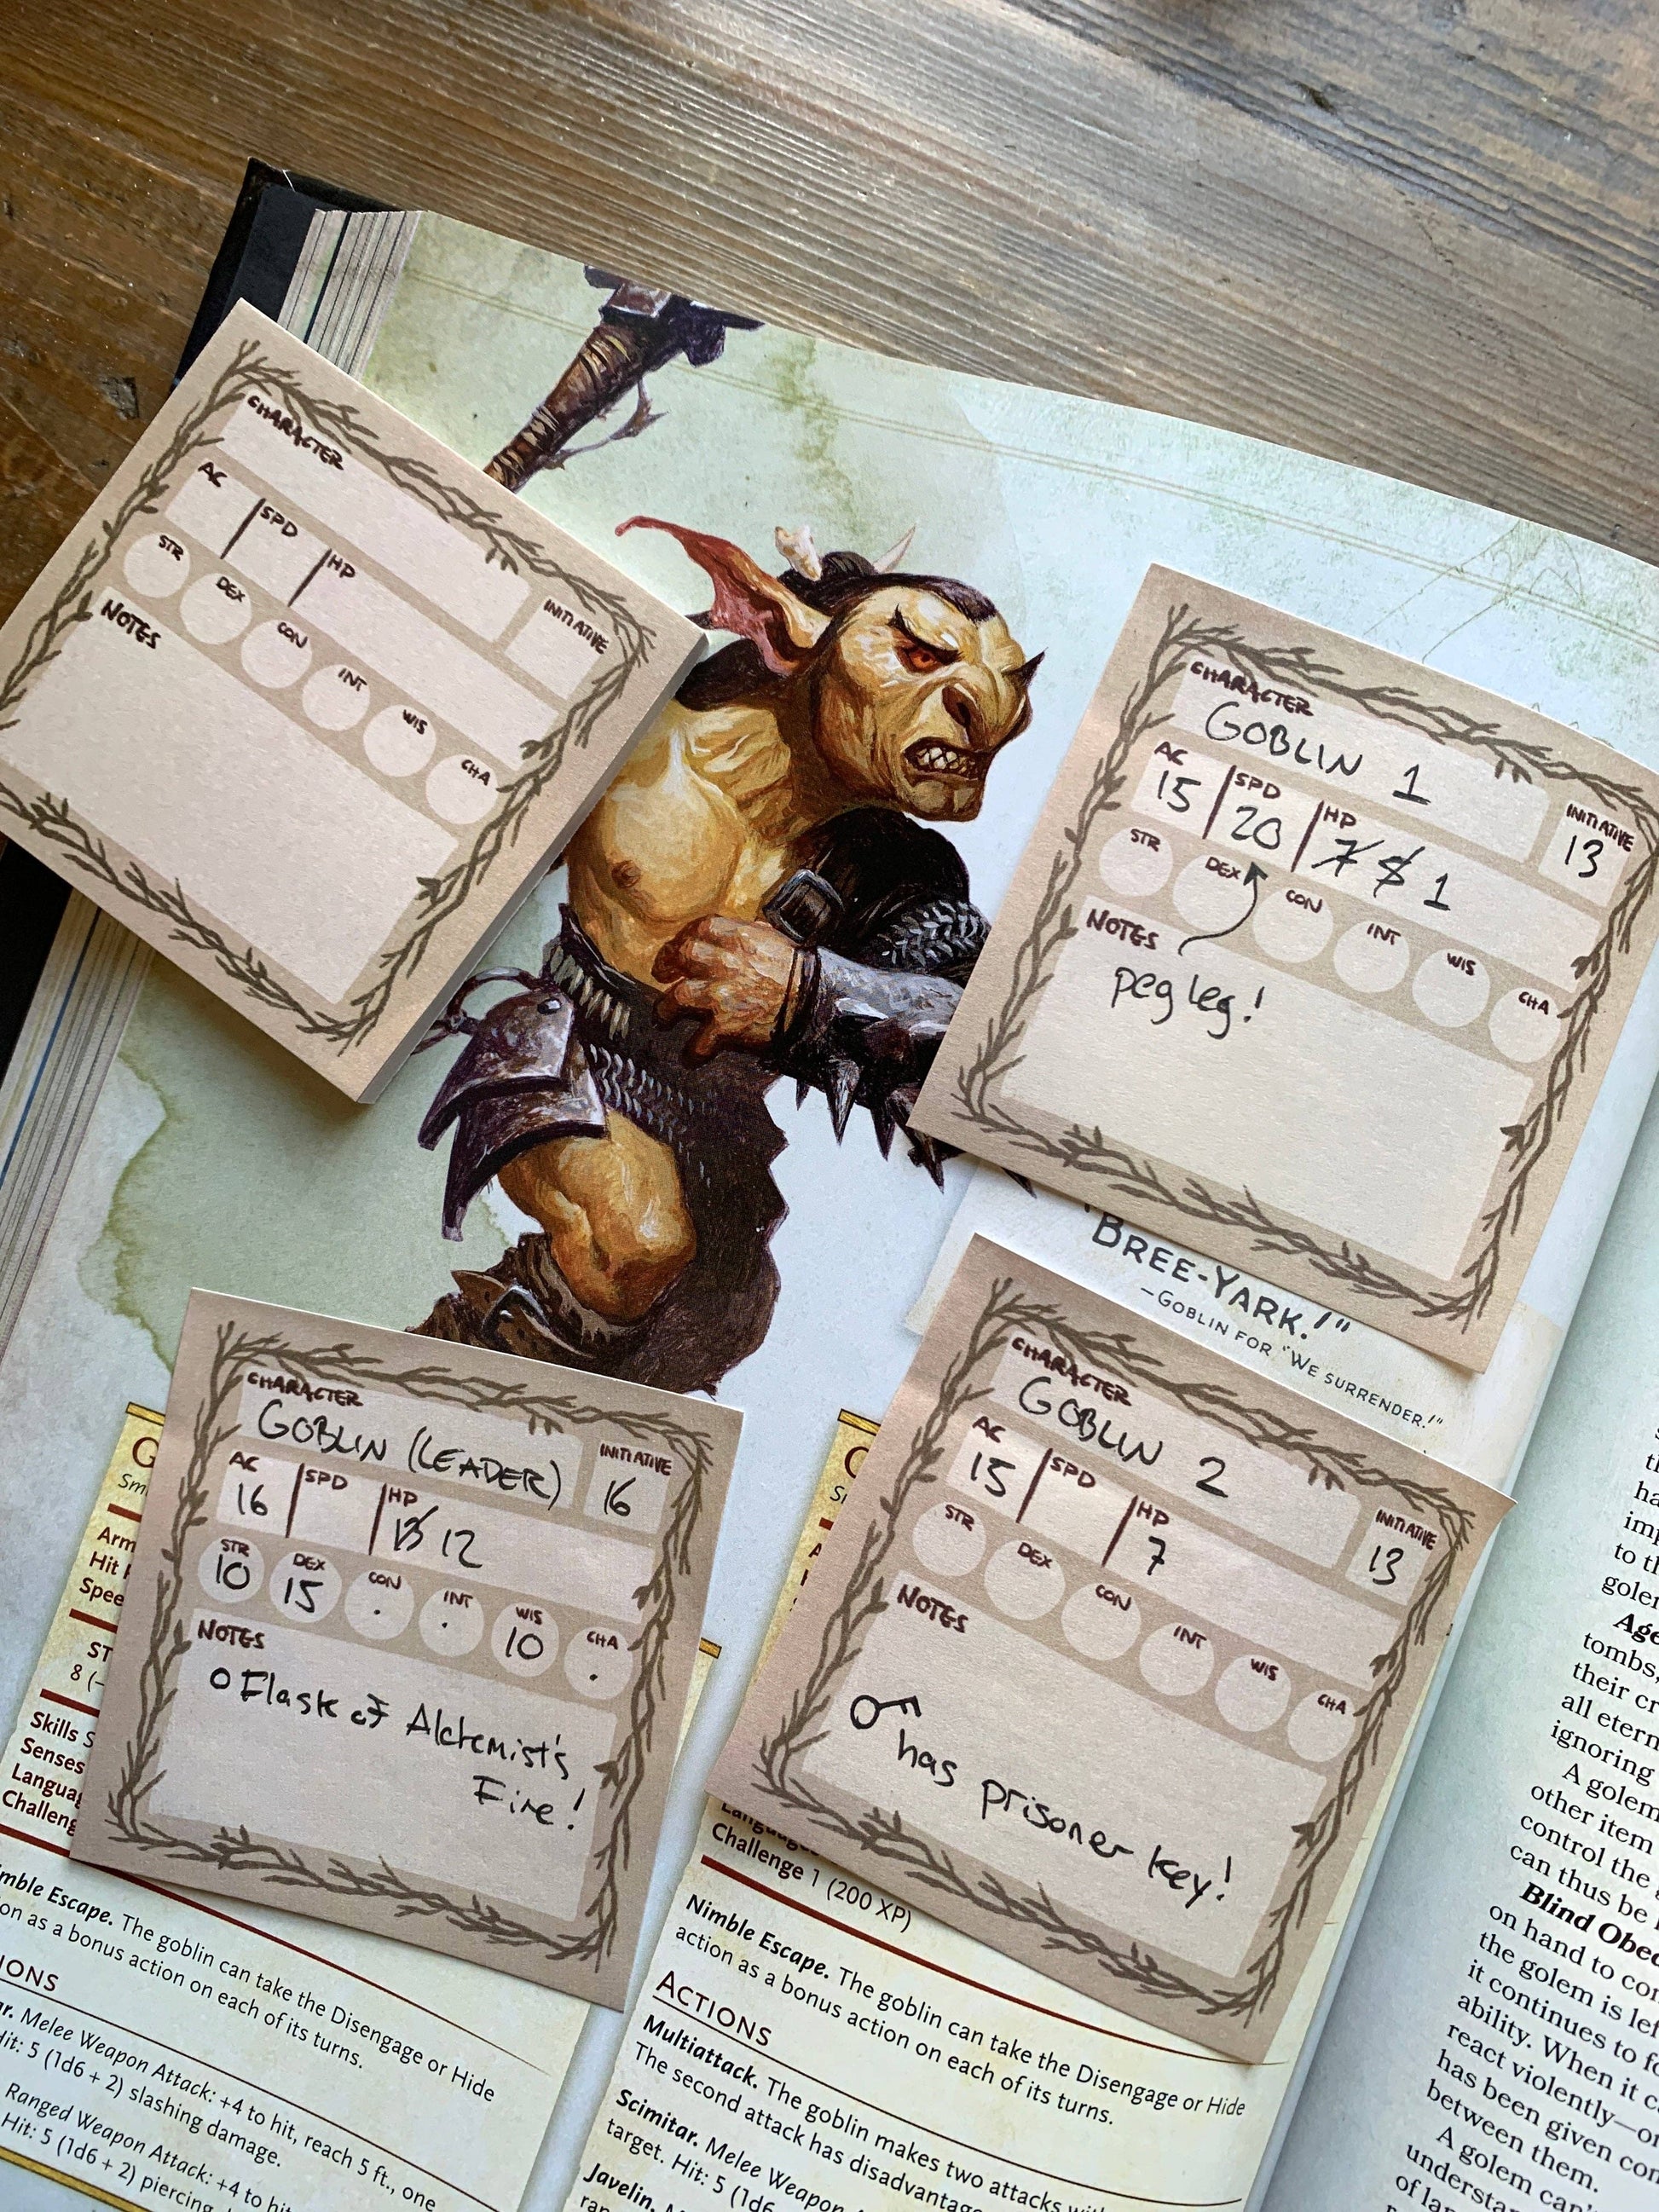 CHARACTER
AC
SPD
HP
INITIATIVE
STR
DEX
CON
INT
WIS
CHA
NOTES
CHARACTER
GOBLIN 1
AC
15
SPD
20
HP
7 5 1
INITIATIVE
13
STR
DEX
CON
INT
WIS
CHA
NOTES
peg leg!
"BREE-YARK!"
—GOBLIN FOR "WE SURRENDER!"
CHARACTER
GOBLIN (LEADER)
AC
16
SPD
HP
13 12
INITIATIVE
16
STR
10
DEX
15
CON
.
INT
.
WIS
10
CHA
.
NOTES
o Flask of Alchemist's
Fire!
CHARACTER
GOBLIN 2
AC
15
SPD
HP
7
INITIATIVE
13
STR
DEX
CON
INT
WIS
CHA
NOTES
has prisoner key!
G
Sm
Arm
Hit
Spee
ST
8 (–
Skills S
Senses
Langua
Challeng
mble Escape. The goblin can take the Disengage or Hide
on as a bonus action on each of its turns.
IONS
r. Melee Weapon Attack: +4 to hit, reach 5 ft., one
Hit: 5 (1d6 + 2) slashing damage.
Ranged Weapon Attack: +4 to hit
Hit: 5 (1d6 + 2) piercing
Languages
Challenge 1 (200 XP)
Nimble Escape. The goblin can take the Disengage or Hide
action as a bonus action on each of its turns.
ACTIONS
Multiattack. The goblin makes two attacks wit
The second attack has disadvantag
Scimitar. Melee Weapon
target. Hit: 5 (1d6
Javelin.
ha
imp
to th
golem
Age
tombs,
their cr
all etern
ignoring
A golem
other item
control the
can thus be
Blind Obed
on hand to con
the golem is lef
it continues to fo
ability. When it ca
react violently—or
has been given con
between them.
A golem can'
understa
of lan